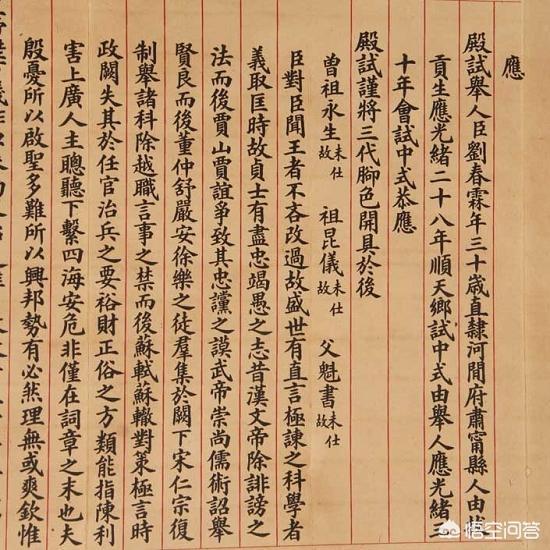 應
殿試舉人臣劉春霖年三十歲直隸河間府肅甯縣人由
貢生應光緒二十八年順天鄉試中式由舉人應光緒三
十年會試中式恭應
殿試謹將三代腳色開具於後
曾祖永生未仕故 祖昆儀未仕故 父魁書未仕故
臣對臣聞王者不吝改過故盛世有直言極諫之科學者
義取匡時故貞士有盡忠竭愚之志昔漢文帝除誹謗之
法而後賈山賈誼爭致其忠讜之謨武帝崇尚儒術詔舉
賢良而後董仲舒嚴安徐樂之徒羣集於闕下宋仁宗復
制舉諸科除越職言事之禁而後蘇軾蘇轍對策極言時
政闕失其於任官治兵之要裕財正俗之方類能指陳利
害上廣人主聰聽下繫四海安危非僅在詞章之末也夫
殷憂所以啟聖多難所以興邦勢有必然理無或爽欽惟
悟空问答